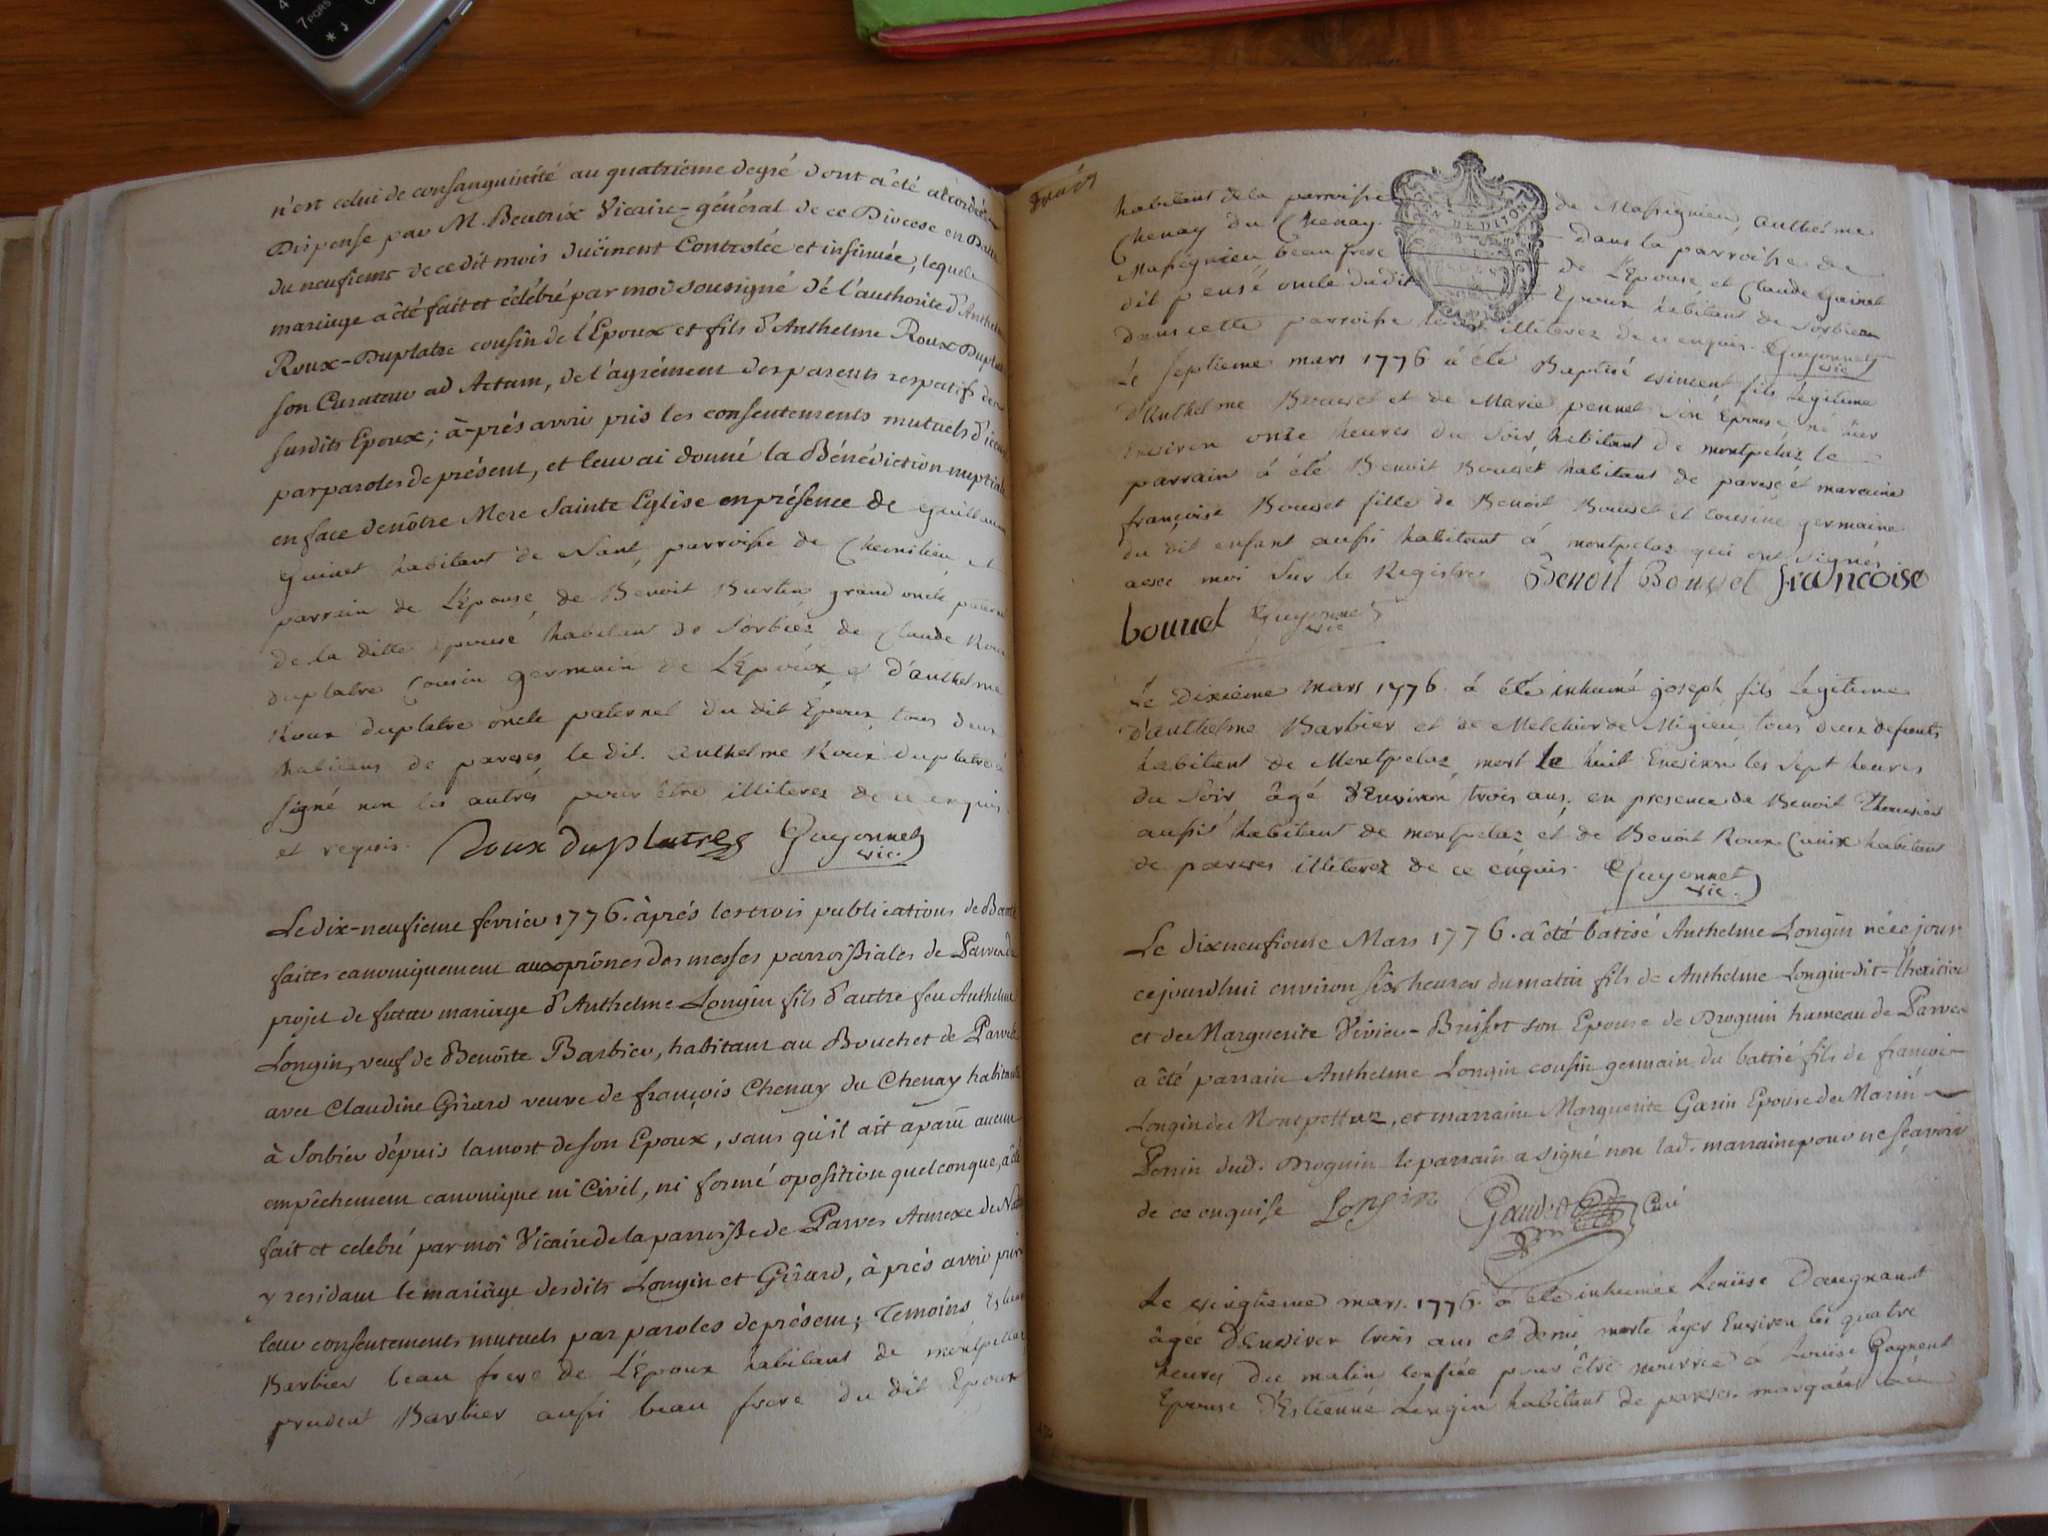 n'est celui de consanguinité au quatrième degré dont a été accordée
Dispense par M. Beatrix Vicaire-général de ce Diocese en Datte
du neufieme de ce dit mois duëment Controlée et insinuée, lequel
mariage a été fait et célébré par moi soussigné de l'authorité d'Anthelme
Roux-Duplatre cousin de l'Epoux et fils d'Anthelme Roux Duplatre
son Curateur ad Actum, de l'agrément des parents respectifs des
susdits Epoux; à-prés avoir pris les consentements mutuels d'iceux
par paroles de présent, et leur ai donné la Bénédiction nuptiale
en face de nôtre Mere Sainte Eglise en présence de Guillaume
Guinet habitant de Nant, parroisse de Chemilieu et
parrain de L'Epouse, de Benoit Burtin grand oncle paternel
de la ditte Epouse habitant de Sorbiez de Claude Roux
duplatre Cousin germain de L'Epoux et d'anthelme
Roux duplatre oncle paternel du dit Epoux tous deux
habitans de parves le dit. anthelme Roux duplatre a
signé non les autres pour être illiterez de ce enquis
et requis. Roux duplatre Guyonnet
vic.
Le dix-neufieme fevrier 1776. après les trois publications de Bans
faites canoniquement aux prônes des messes parroissiales de Parves du
projet de futur mariage d'Anthelme Longin fils d'autre feu Anthelme
Longin, veuf de Benoîte Barbier, habitant au Bouchet de Parves
avec Claudine Girard veuve de françois Chenay du Chenay habitante
à Sorbier dépuis la mort de son Epoux, sans qu'il ait aparu aucun
empêchement canonique ni Civil, ni formé oposition quelconque, a été
fait et celebré par moi Vicaire de la parroisse de Parves Annexe de
y residant le mariage desdits Longin et Girard, à prés avoir pris
leur consentements mutuels par paroles de présent; Temoins
Barbier beau frere de L'Epoux habitant de montpelaz
prudent Barbier aussi beau frere du dit Epoux
habitant de la parroisse de Massignieu, anthelme
Chenay du Chenay dans la parroisse de
Massignieu beau frere de L'Epouse, et Claude Guinet
dit pensé oncle dudit Epoux habitant de Sorbier
dans cette parroisse tous illiterez de ce enquis. Guyonnet
vic
Le septieme mars 1776 à été Baptisé vincent fils Légitime
d'Anthelme Bouvet et de Marie pennet son Epouse, né hier
Environ onze heures du soir habitant de montpelaz le
parrain à été Benoit Bouvet habitant de parves et marraine
françoise Bouvet fille de Benoit Bouvet et cousine germaine
du dit enfant aussi habitant à montpelaz qui ont signés
avec moi sur le Registre Benoit Bouvet francoise
bouuet Guyonnet
vic
Le Dixieme mars 1776. à été inhumé joseph fils Légitime
d'anthelme Barbier et de Melchior de Migieu tous deux defunts
habitant de Montpelaz mort le huit Environ les sept heures
du soir, âgé d'Environ trois ans. en presence de Benoit
aussi habitant de montpelaz et de Benoit Roux Cunix habitant
de parves illiterez de ce enquis. Guyonnet
vic.
Le dixneufieme Mars 1776. a été batisé Anthelme Longin né ce jour
cejourdhui environ six heures du matin fils de Anthelme Longin-dit-l'heritier
et de Marguerite Vivier-Brisfort son Epouse de Droguin hameau de Parves
a été parrain Anthelme Longin cousin germain du battisé fils de francois
Longin de Montpellaz, et marraine Marguerite Garin Epouse de Marin
Perrin dud. Droguin le parrain a signé non lad. marraine pour ne sçavoir
de ce enquise Longin Curé
Le vingtieme mars. 1776. à été inhumée Louise Daugnant
âgée d'Environ trois ans et demi morte hyer Environ les quatre
heures du matin confiée pour être nourrie à Louise Gagneut
Epouse d'Estienne Longin habitant de parves.